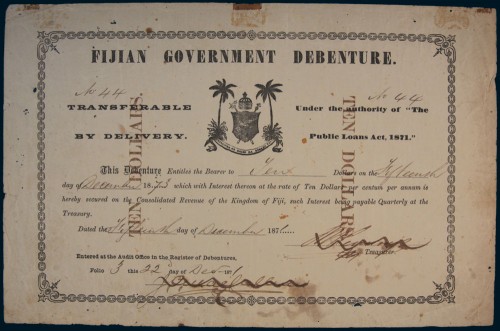 FIJIAN GOVERNMENT DEBENTURE.
No 44
No 44
TRANSFERABLE
BY DELIVERY.
Under the authority of "The
Public Loans Act, 1871."
TEN DOLLARS.
TEN DOLLARS.
This Debenture Entitles the Bearer to Ten Dollars on the Fifteenth
day of December 1873 which with Interest thereon at the rate of Ten Dollars per centum per annum is
hereby secured on the Consolidated Revenue of the Kingdom of Fiji, such Interest being payable Quarterly at the
Treasury.
Dated the Fifteenth day of December 1871
Treasurer.
Entered at the Audit Office in the Register of Debentures.
Folio 3 this 22 day of Dec 187